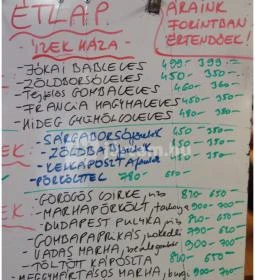 ÉTLAP
"ÍZEK HÁZA"
ÁRAINK
FORINTBAN
ÉRTENDŐEK!
- JÓKAI BABLEVES 499.- 399.-
- ZÖLDBORSÓLEVES 450 - 350-
- Tejfölös GOMBALEVES 460- 360-
- FRANCIA HAGYMALEVES 450- 350-
- HIDEG GYÜMÖLCSLEVES 480- 350-
- SÁRGABORSÓfőzelék 450 - 350-
- ZÖLDBABfőzelék 450 - 350-
- KELKÁPOSZTAfőzelék 450 - 350-
- PÖRKÖLTTEL 780 650-
- GÖRÖGÖS CSIRKE, rizs 810- 650-
- MARHAPÖRKÖLT, tarhonya 900- 700-
- BUDAPEST PULYKA, rizs 810- 650-
- GOMBAPAPRIKÁS, nokedli 790- 650-
- VADAS MARHA, 900- 700-
- TÖLTÖTT KÁPOSZTA 810- 650-
- MEGGYMÁRTÁSOS MARHA, burg. 900- 700-